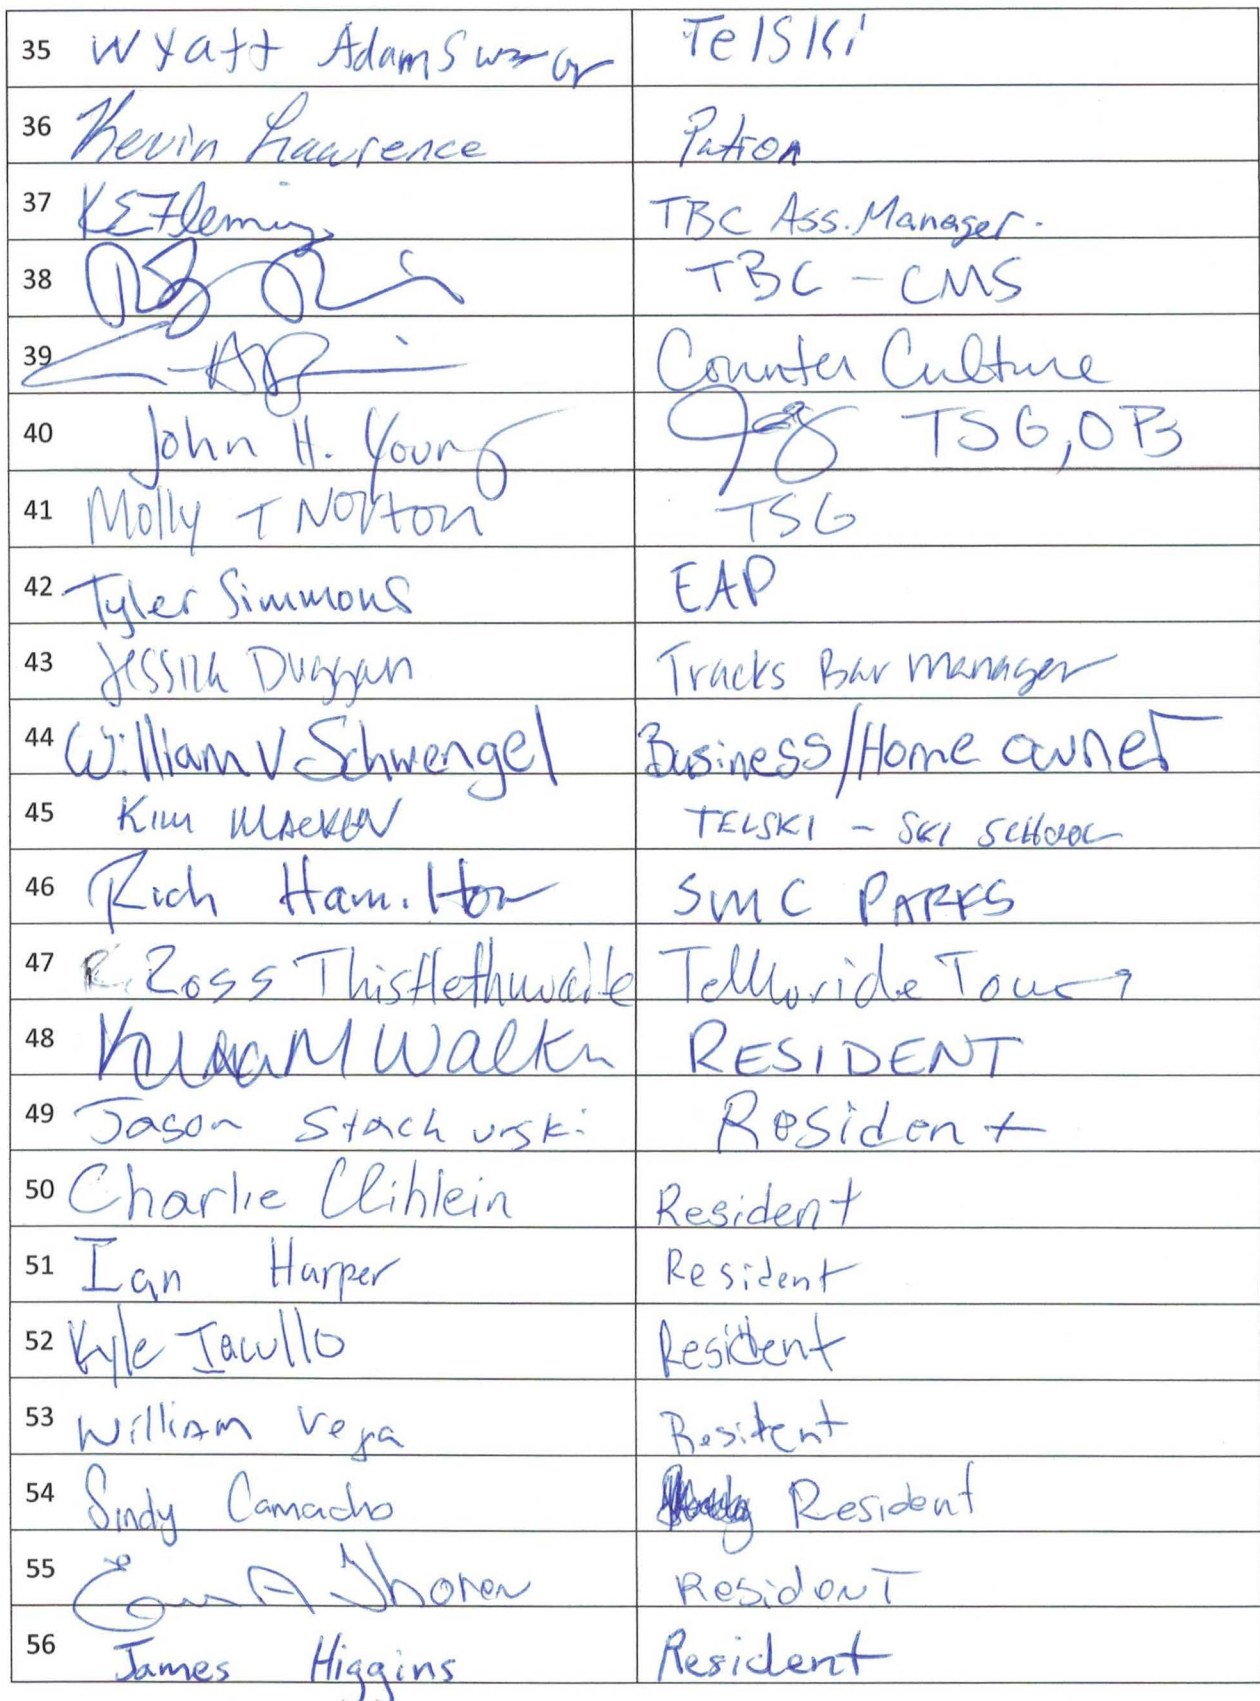 35 Wyatt Adams Telski
36 Kevin Lawrence Patron
37 KE Fleming TBC Ass. Manager.
38 TBC - CMS
39 Counter Culture
40 John H. Young TSG, OPB
41 Molly T Norton TSG
42 Tyler Simmons EAP
43 Jessica Duggan Tracks Bar Manager
44 William V Schwengel Business/Home owner
45 Kim TELSKI - SKI SCHOOL
46 Rich Hamilton SMC PARKS
47 R. Ross Thistlethwaite Telluride Tours
48 M Walker RESIDENT
49 Jason Stachurski Resident
50 Charlie Resident
51 Ian Harper Resident
52 Kyle Iacullo Resident
53 William Vega Resident
54 Sindy Camacho Resident
55 A Thoren Resident
56 James Higgins Resident